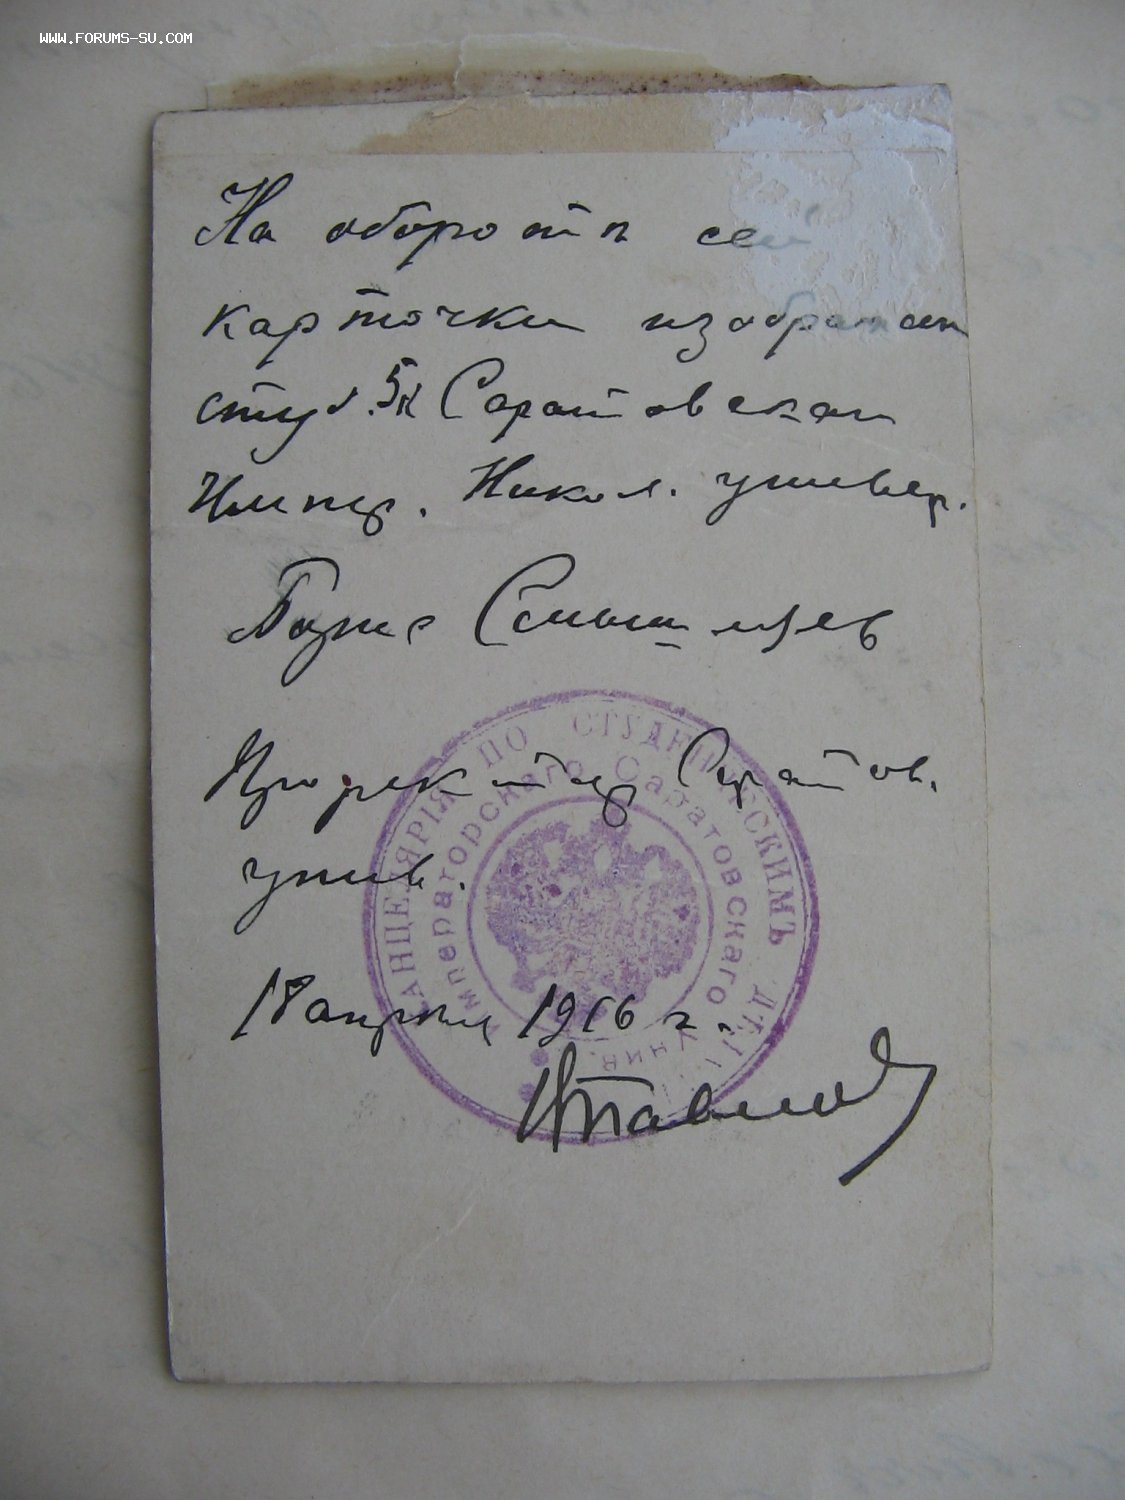 WWW.FORUMS-SU.COM
На оборотѣ сей
карточки изображен
студ. 5к Саратовскаго
Импер. Никол. универ.
Борис Смышляев
Проректор Саратов.
унив.
18 апрѣля 1916 г.
КАНЦЕЛЯРІЯ ПО СТУДЕНЧЕСКИМЪ ДѢЛ
Императорскаго Саратовскаго Унив.